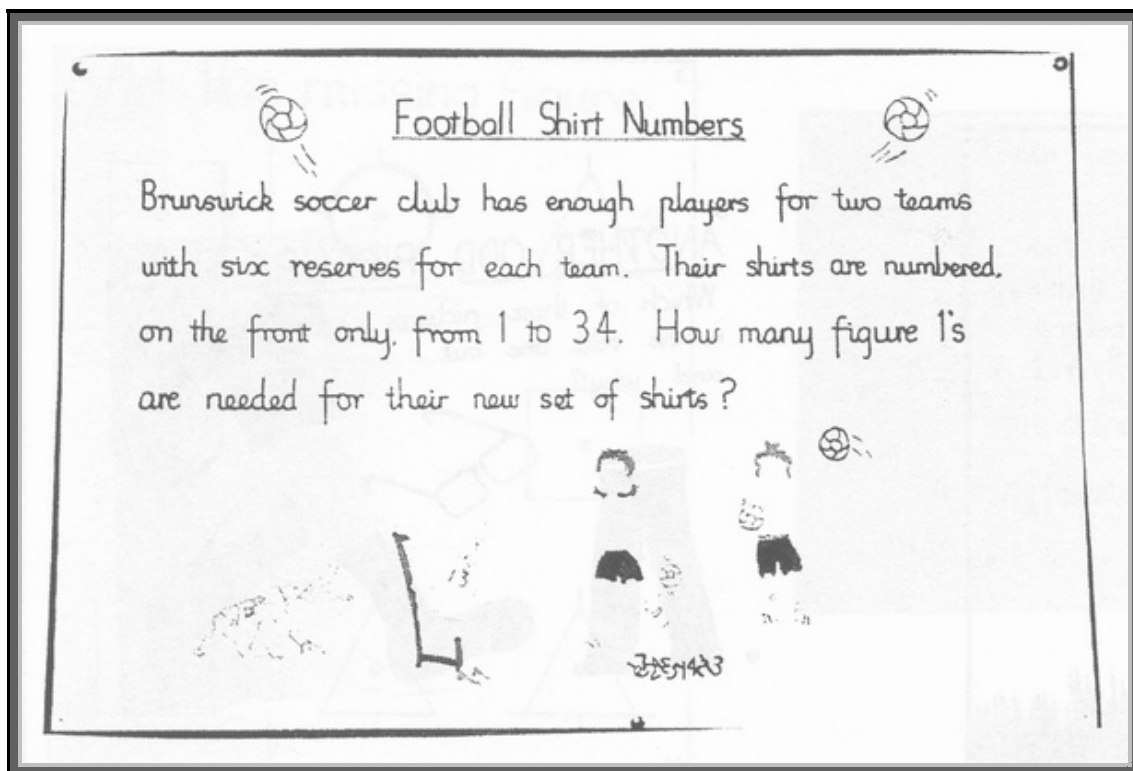 Football Shirt Numbers
Brunswick soccer club has enough players for two teams
with six reserves for each team. Their shirts are numbered,
on the front only, from 1 to 34. How many figure 1's
are needed for their new set of shirts?
13